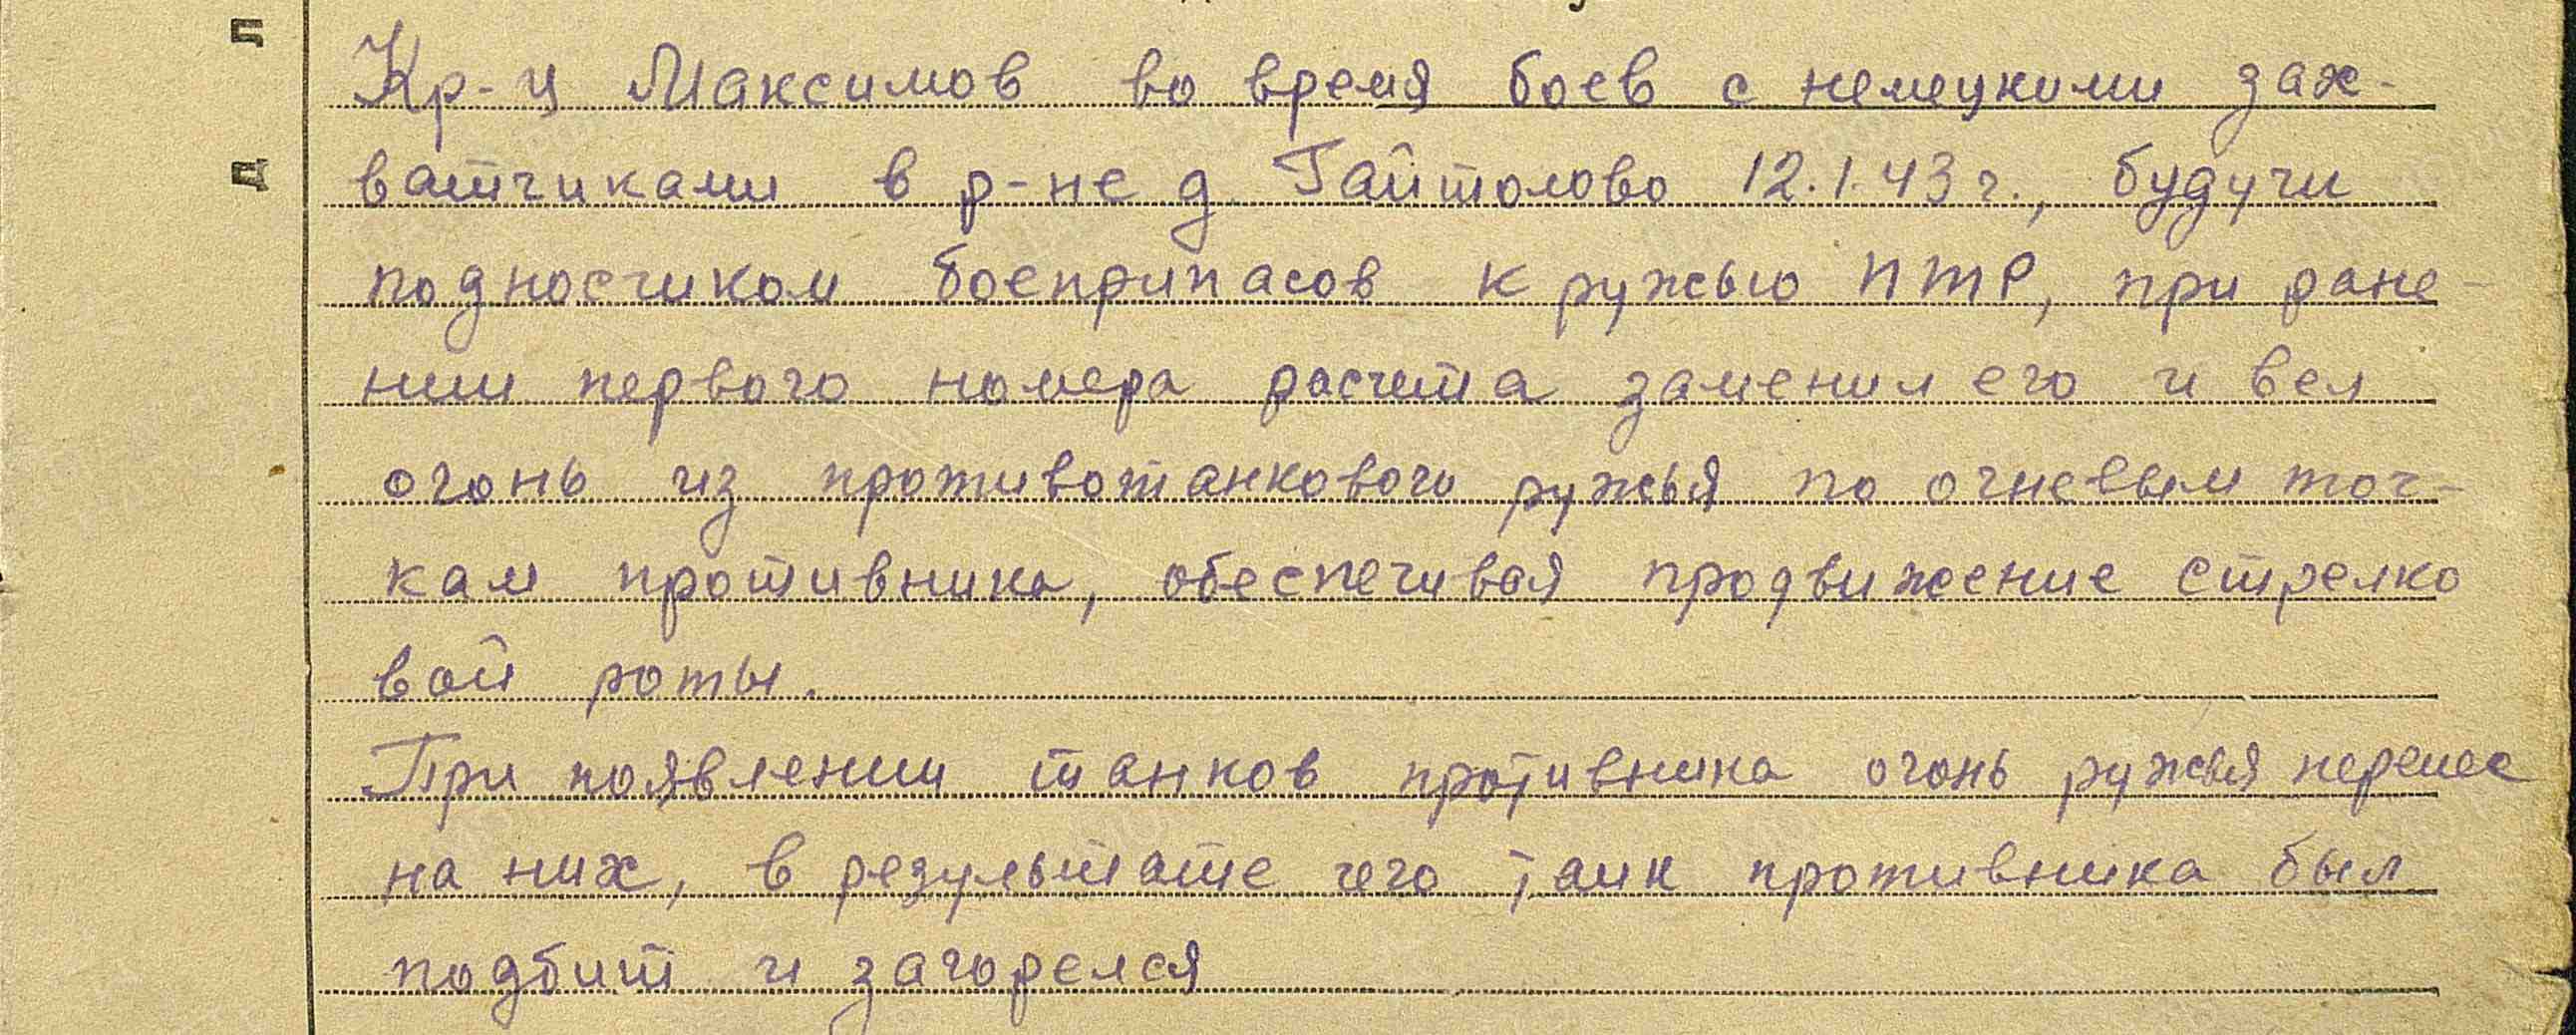 Кр-ц Максимов во время боев с немецкими зах-
ватчиками в р-не д. Гайтолово 12.1.43 г., будучи
подносчиком боеприпасов к ружью ПТР, при ране-
нии первого номера расчета заменил его и вел
огонь из противотанкового ружья по огневым точ-
кам противника, обеспечивая продвижение стрелко
вой роты.
При появлении танков противника огонь ружья перенес
на них, в результате чего танк противника был
подбит и загорелся